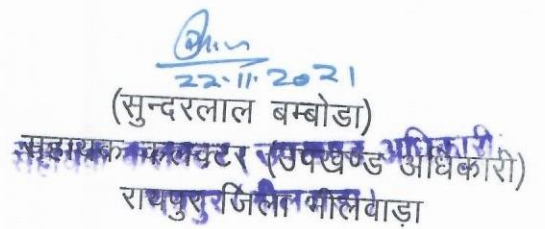 22.11.2021
(सुन्दरलाल बम्बोडा)
सहायक कलक्टर (उपखण्ड अधिकारी)
रायपुर जिला भीलवाड़ा